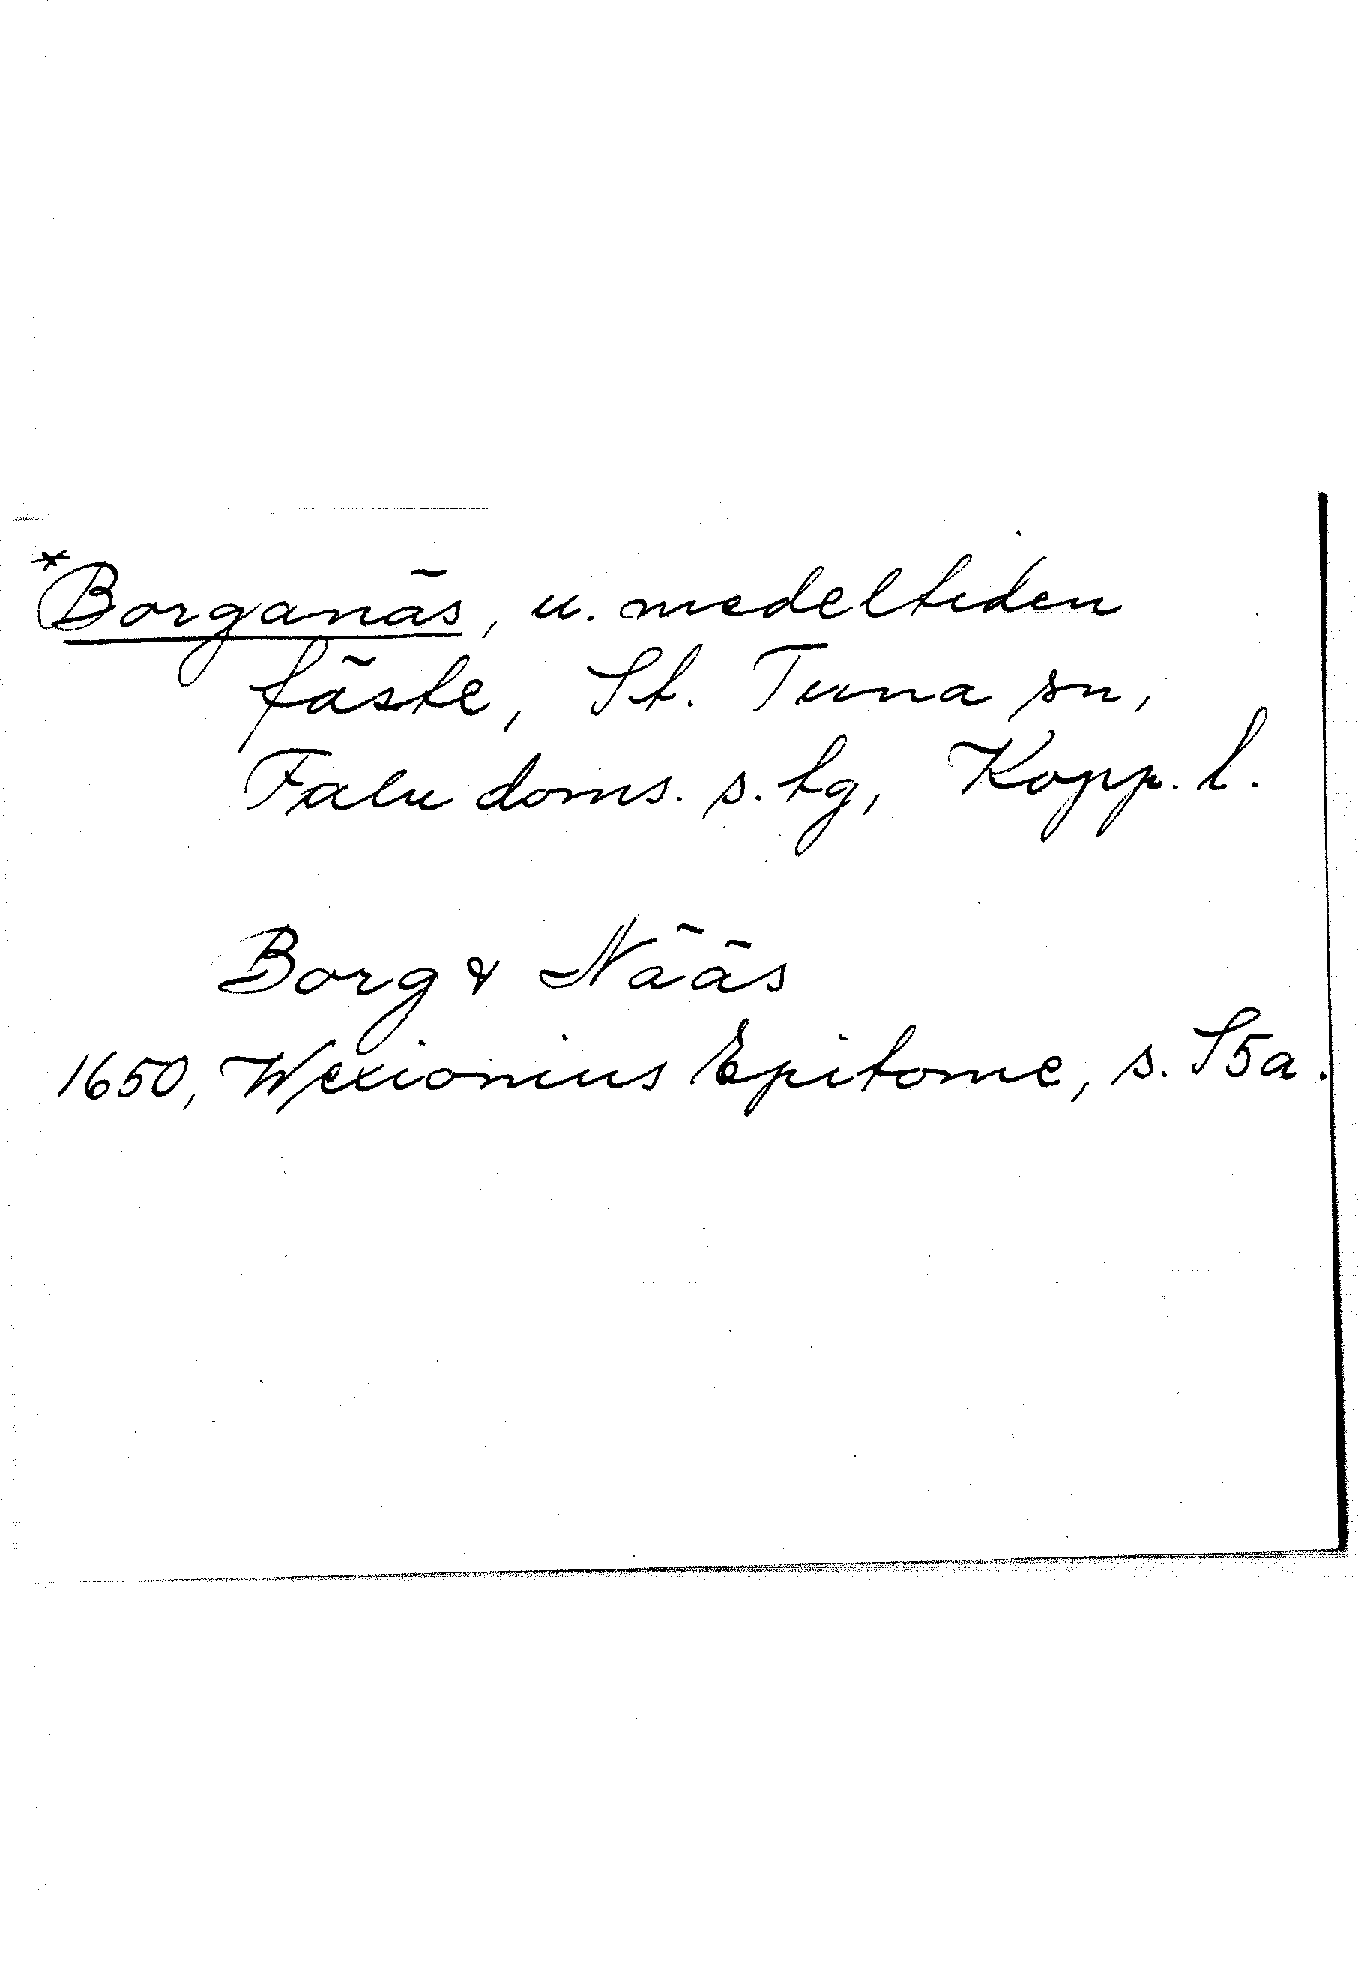 *Borganäs, u. medeltiden
fäste, St. Tuna sn,
Falu doms. s. tg, Kopp. l.
Borg & Nääs
1650, Wexionius Epitome, s. S5a.